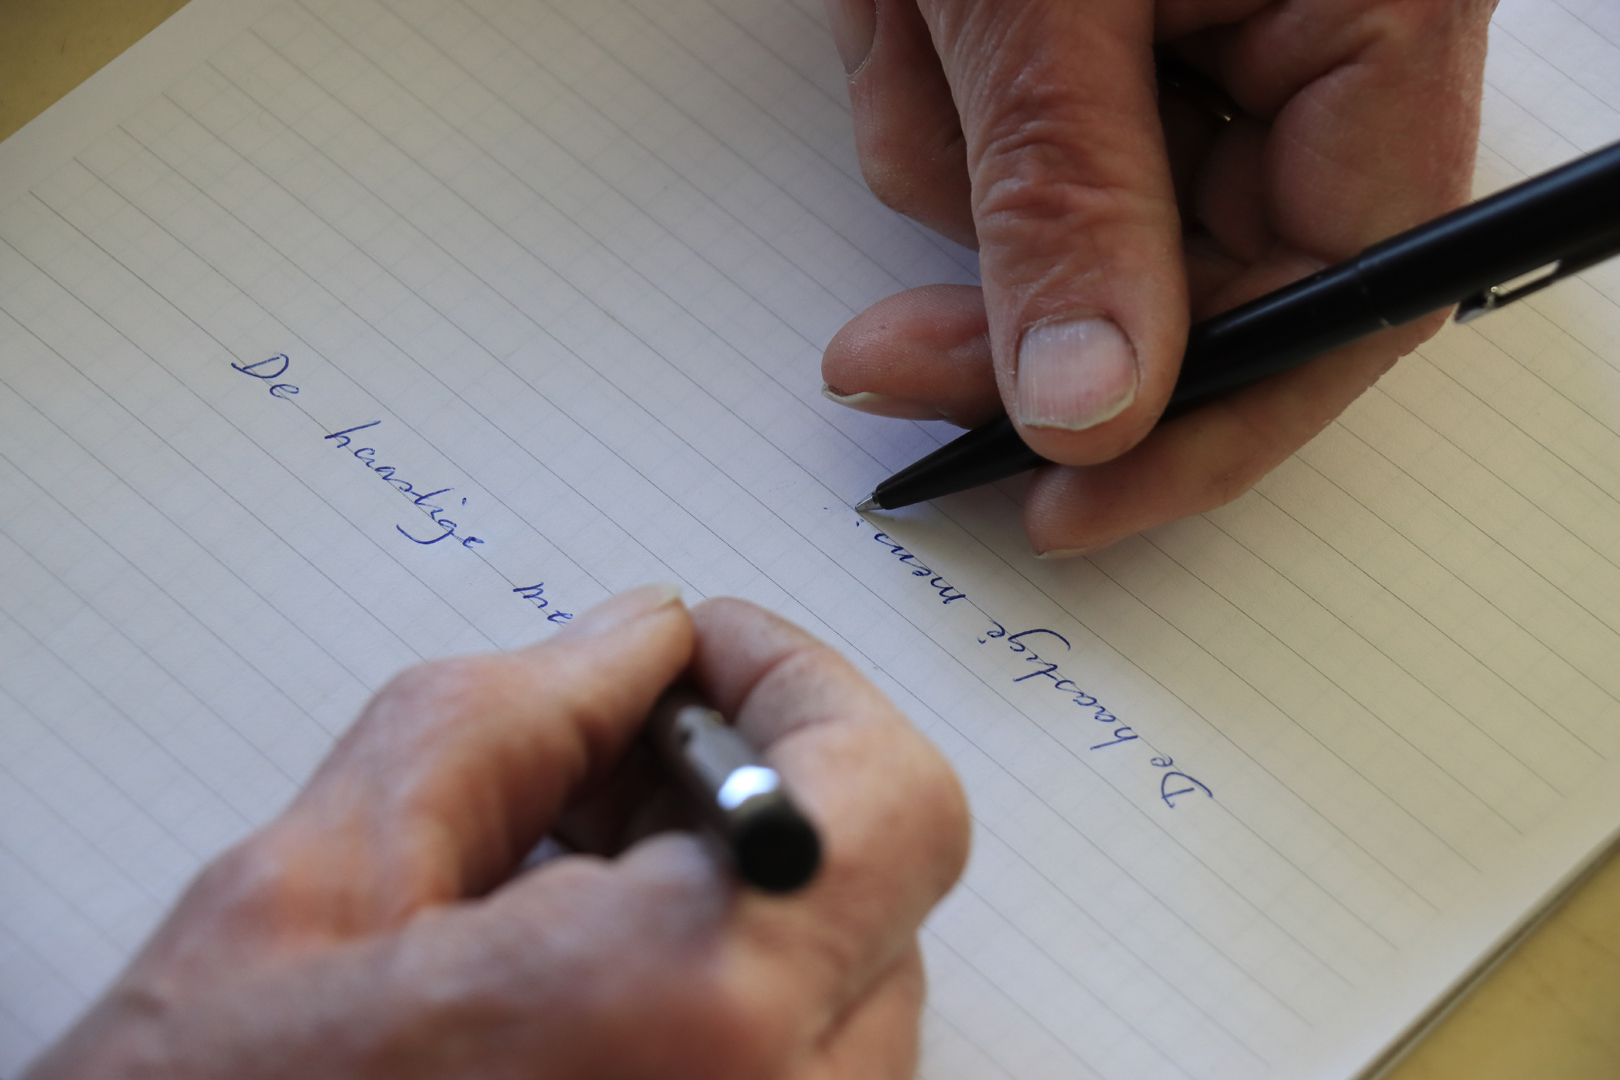 De haastige me
De haastige mens